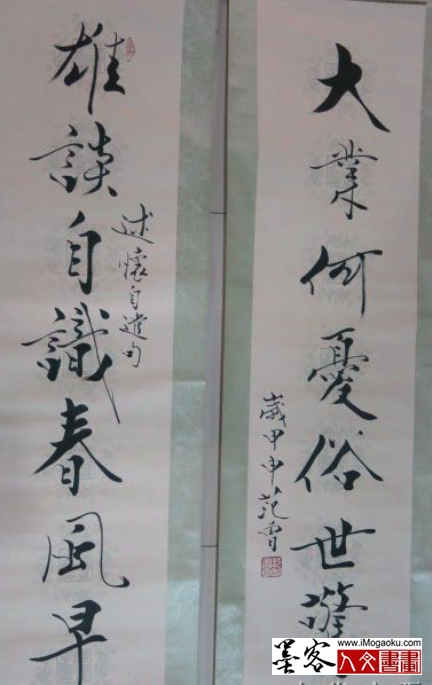 大業何憂俗世
歲甲申范曾
述懷自遣句
雄談自識春風早
www.iMogaoku.com
墨客 人文書畫